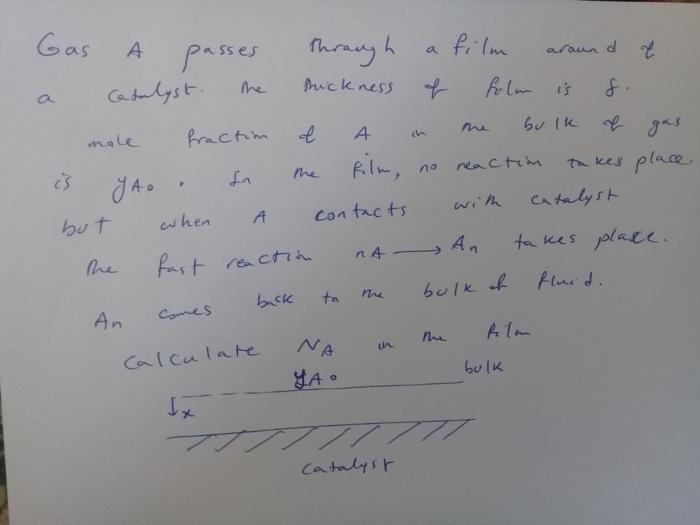 Gas A passes through a film around of
a catalyst. The thickness of film is δ.
mole fraction of A in the bulk of gas
is yA0. In the film, no reaction takes place,
but when A contacts with catalyst
the fast reaction nA → An takes place.
An comes back to the bulk of fluid.
Calculate NA in the film
yA0
bulk
x
catalyst